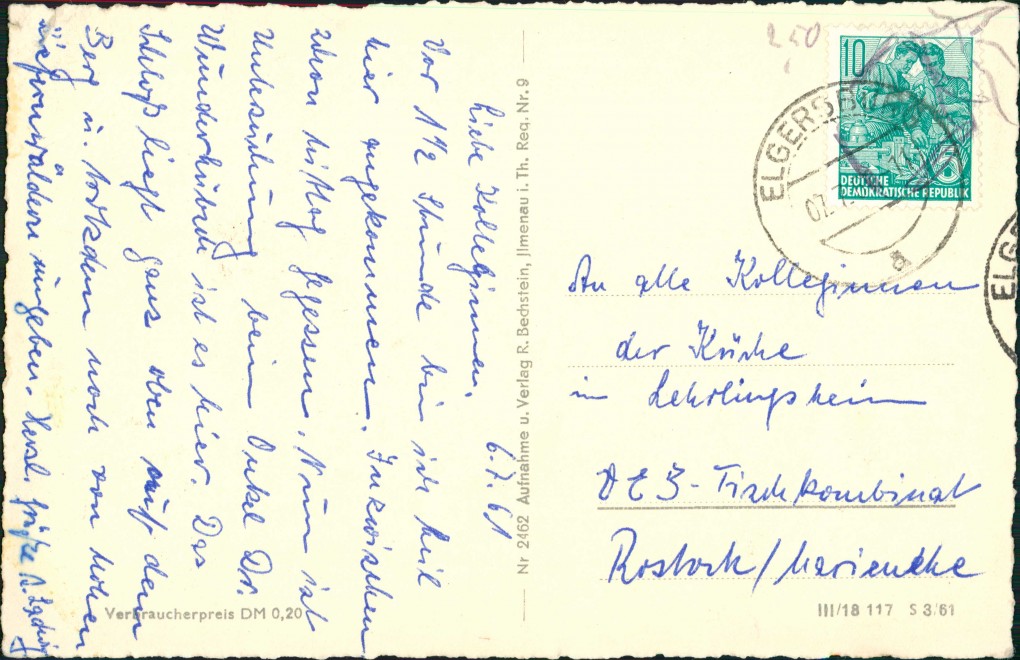 Liebe Kolleginnen.
6.7.61
Vor 1 1/2 Stunde bin ich heil
hier angekommen. Inzwischen
schon Mittag gegessen. Nun ist
Untersuchung beim Onkel Dr.
Wunderhübsch ist es hier. Das
Schloß liegt ganz oben auf dem
Berg u. trotzdem noch von hohen
Kiefernwäldern umgeben. Herzl. Grüße
Verbraucherpreis DM 0,20
Nr 2462 Aufnahme u. Verlag R. Bechstein, Jlmenau i. Th. Reg. Nr. 9
250
10
DEUTSCHE
DEMOKRATISCHE REPUBLIK
5
ELGERSBURG
07.7.
a
ELGE
An alle Kolleginnen
der Küche
im Lehrlingsheim
VEB-Fischkombinat
Rostock/Marienehe
III/18 117 S 3/61